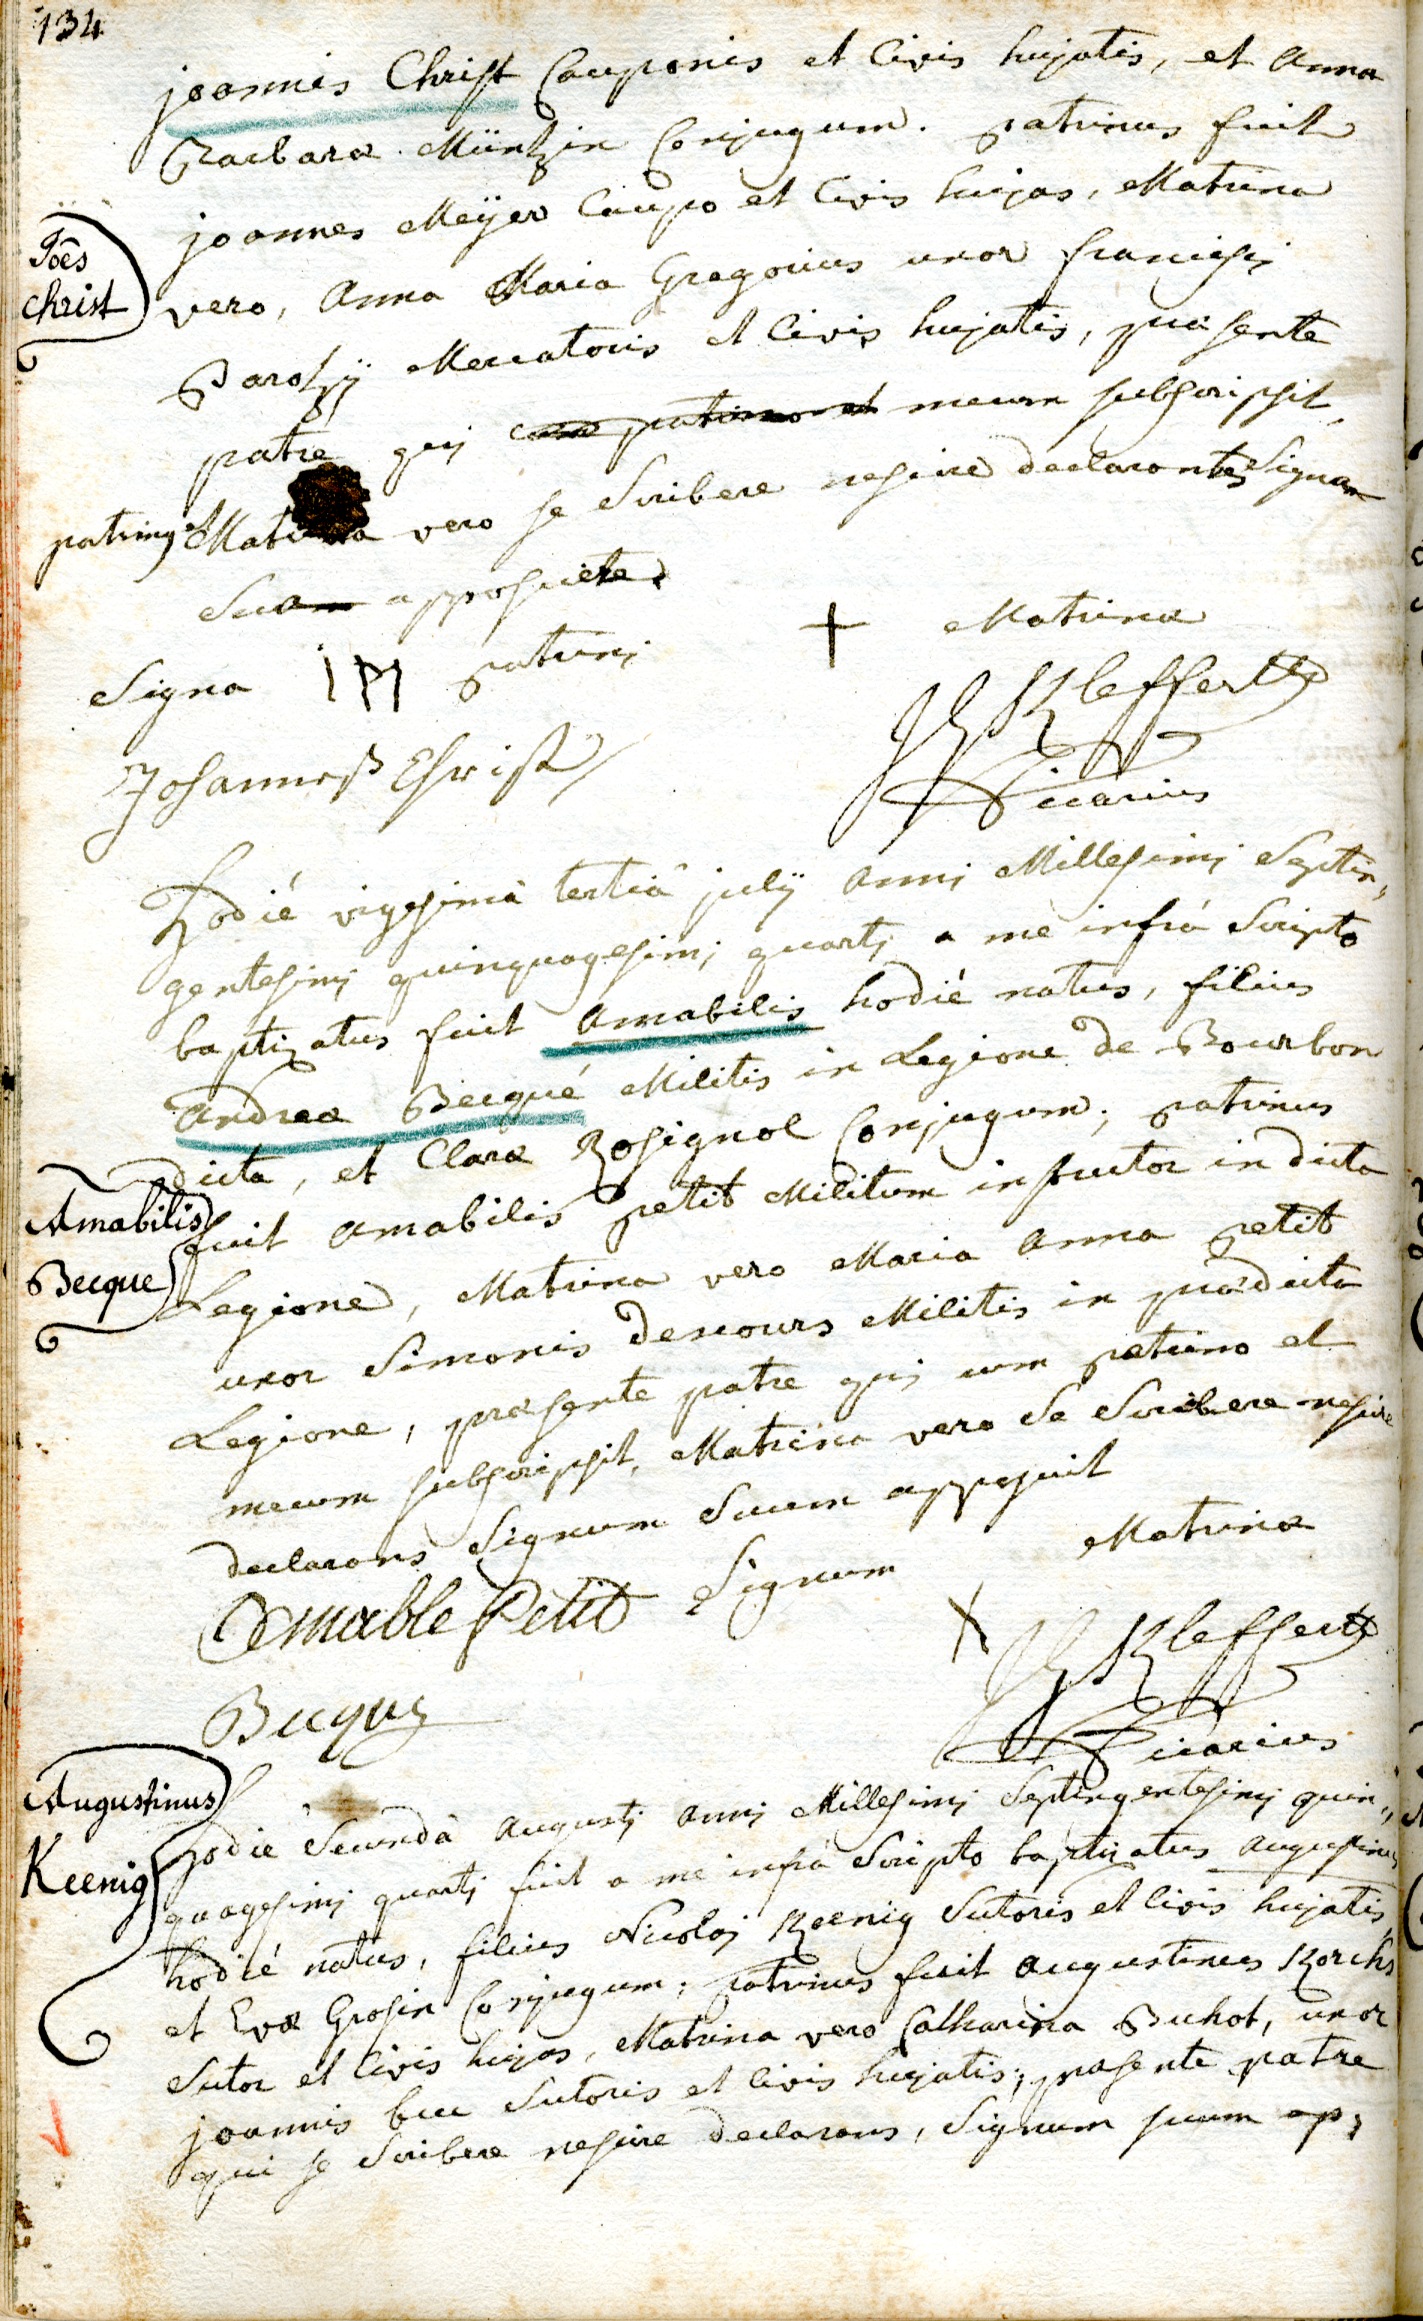 134
joannis Christ Cauponis et Civis hujatis, et Anna
Barbara Müntzin Conjugum. patrinus fuit
joannes Meÿer Caupo et Civis hujas, Matrina
Joēs
Christ
vero, Anna Maria Gregorius uxor francisci
Parotzij Mercatoris et Civis hujatis, præsente
patre qui cum patrino et mecum subscripsit,
patrinus et Matrina vero se Scribere nescire declarantes Signa
Sua apposuere.
Signa patrini + Matrinæ
JG Kleffert
Johanneß Christ
Vicarius
Hodié vigesimâ tertiâ julÿ anni Millesimi Septin,,
gentesimi quinquagesimi quarti a me infrà Scripto
baptizatus fuit Amabilis hodié natus, filius
Andreæ Becqué Militis in Legione de Bourbon
dicta, et Claræ Rosignol Conjugum; patrinus
Amabilis
Becque
fuit Amabilis petit Militum instructor in dicta
Legione, Matrina vero Maria Anna petit
uxor Simonis Descours Militis in prædicta
Legione, præsente patre qui cum patrino et
mecum subscripsit, Matrina vero Se Scribere nescire
declarans Signum Suum apposuit
Amable Petit Signum X Matrinæ
JG Kleffert
Becque
Vicarius
Augustinus
Keenig
Hodié Secundâ Augusti anni Millesimi Septingentesimi quin,,
quagesimi quarti fuit a me infrà Scripto baptizatus Augustinus
hodié natus, filius Nicolaj Keenig Sutoris et Civis hujatis,
et Evæ Grosin Conjugum; patrinus fuit Augustinus Korchs
Sutor et Civis hujas, Matrina vero Catharina Buhot, uxor
joannis buc Sutoris et Civis hujatis; præsente patre
qui se Scribere nescire declarans, Signum suum ap,